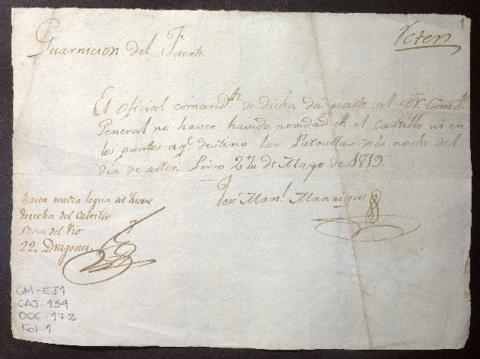 Guarnicion del Fuerte
El oficial comand.te de dicha da parte al Sr. Com.te
General no haver havido novedad en el castillo ni en
los puntos aq.e destino las Patrullas de la noche del
dia de aller. 27 de Mayo de 1819
José Man.l Manrique
hasta media legua del
derecha del Castillo
Boca del Rio
22. Dragones
GM-EJ1
CAJ. 134
DOC. 172
Fol. 1